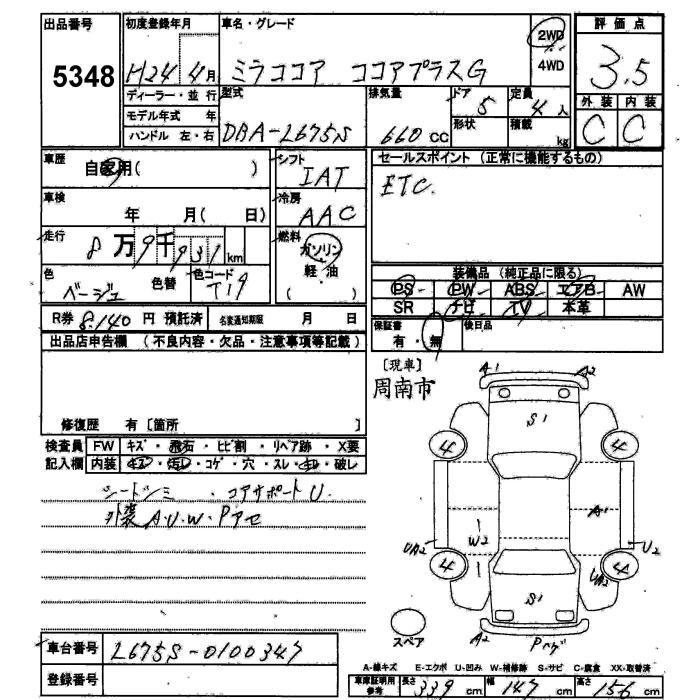 出品番号 5348
初度登録年月 H24 4月
車名・グレード ミラココア ココアプラスG
2WD
4WD
評価点 3.5
外装 内装
C C
ディーラー・並行
モデル年式 年
ハンドル 左・右
型式 DBA-L675S
排気量 660 CC
ドア 5
定員 4人
形状
積載 kg
車歴 自家用( )
シフト IAT
セールスポイント (正常に機能するもの)
ETC.
車検 年 月( 日)
冷房 AAC
走行 8万9千931km
燃料 ガソリン
軽・油
( )
色 ベージュ 色替
色コード T19
装備品 (純正品に限る)
PS PW ABS エアB AW
SR ナビ TV 本革
R券 8.140円 預託済 名変通知期限 月 日
保証書 有・無
後日品
出品店申告欄 (不良内容・欠品・注意事項等記載)
[現車]
周南市
修復歴 有 [箇所 ]
検査員 FW キズ・飛石・ヒビ割・リペア跡・X要
記入欄 内装 キズ・汚レ・コゲ・穴・スレ・キレ・破レ
シートシミ・コアサポートU.
外装A.U.W.Pアセ
A1 A2
S1
4 4
A1
W2
UA2 U2
4 4
UA2
S1
A2 Pハゲ
スペア
A-線キズ E-エクボ U-凹み W-補修跡 S-サビ C-腐食 XX-取替済
車台番号 L675S-0100347
登録番号
車庫証明用参考 長さ 339 cm 幅 147 cm 高さ 156 cm